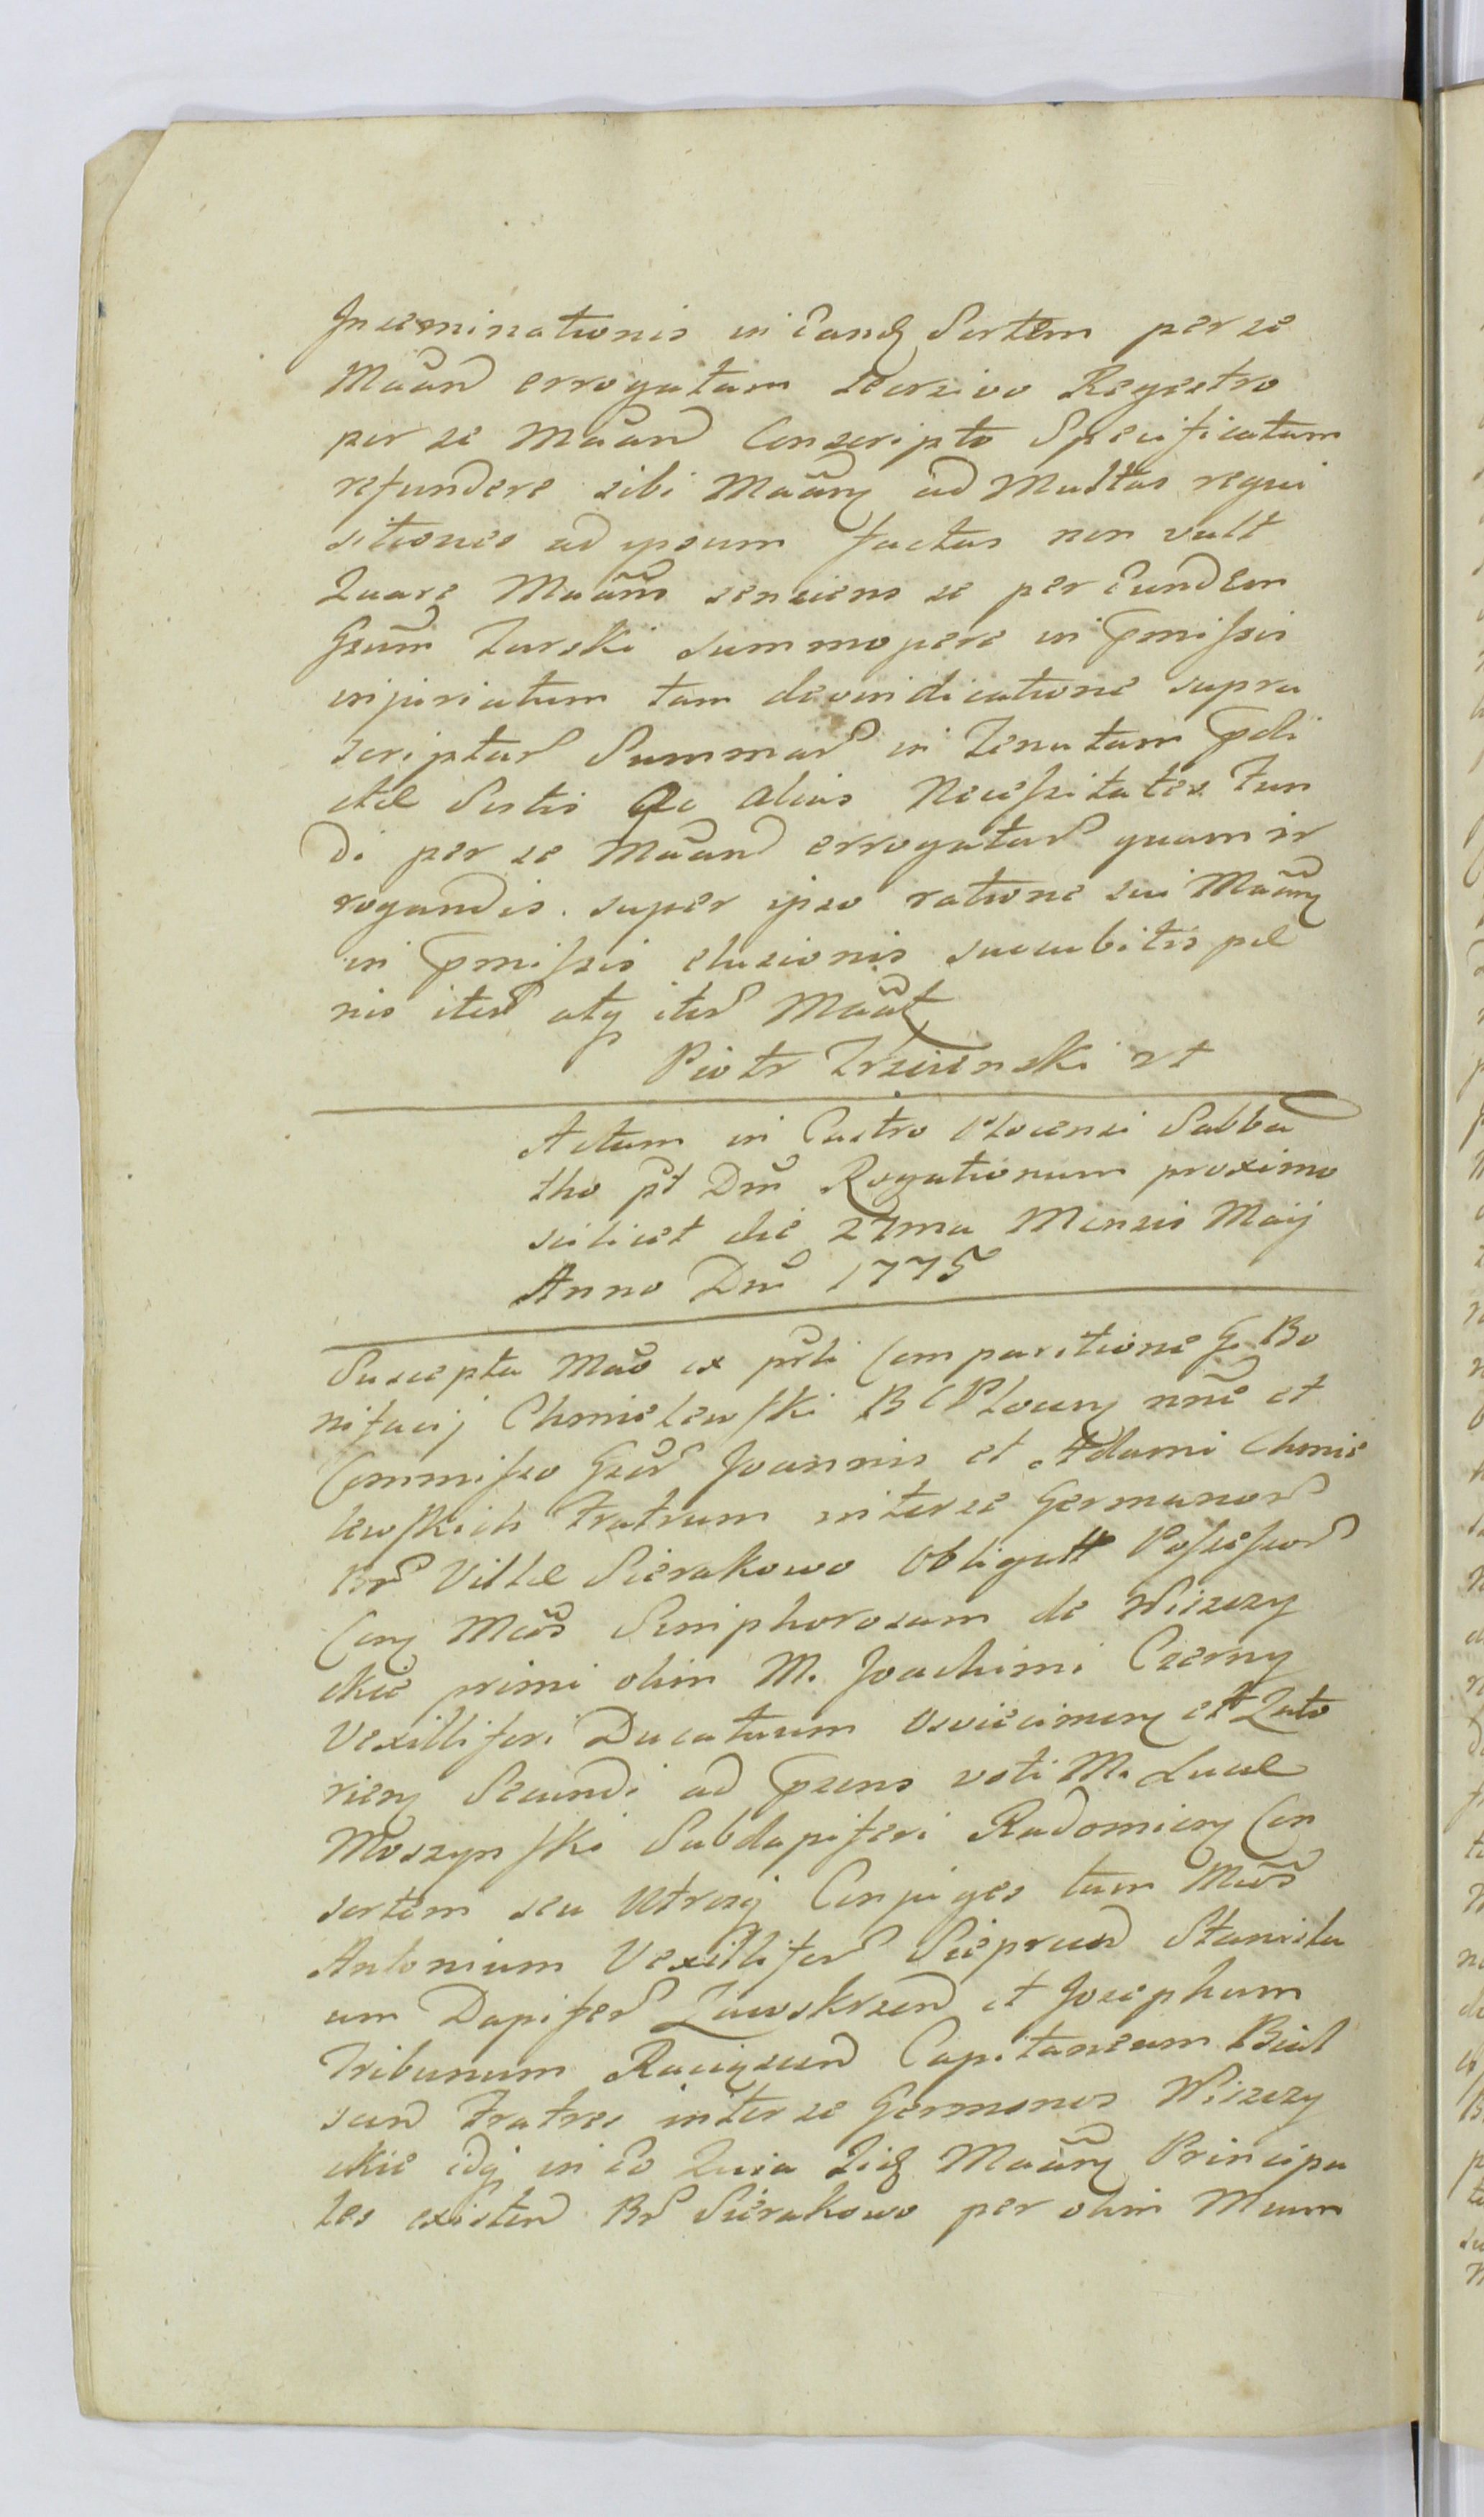 Inseminationis in Eandq Sortem per se
Maãnd errogatam seorsivo Regestro
per se Maãnd Conscripto Specificatam
refundere sibi Maãnq ad Multas requi
sitiones ad ipsum factas non vult
Quare Maãns senciens se per Eundem
Gsum Turski summopere in pmissis
injuriatum tam de vindicatione supra
scriptar Summar in Tenutam pdi
ctæ Sortis Ac alias Necessitates Fun
di per se Maãnd errogatar quam ir
rogandis super ipso ratione sui Maãnq
in pmissis elusionis succubitis pæ
nis iter atq iter Maãt
Piotr Trzcienski mt
Actum in Castro Plocensi Sabba
tho pt Dm̃ Rogationum proximo
scilicet die 27ma Mensis Maij
Anno Dni 1775
Suscepta Mão ex psli Comparitione G. Bo
nifacij Chmielewski BCPlocenq nñe et
Commisso Gsor Joannis et Adami Chmie
lewskich Fratrum inter se Germanor
Br Villæ Sierakowo Obligatt Possessor
Cenq Mcos Simphorosam de Wiszczy
ckie primi olim M. Joachimi Czerny
Vexilliferi Ducatuum Osviecimenq et Zato
rienq Secundi ad psens voti M. Lucæ
Moszynski Subdapiferi Radomienq Con
sortem seu Utrosq Conjuges tum Mcos
Antonium Vexillifer Sieprcen Stanisla
um Dapifer Zawskrzen et Josephum
Tribunum Raciązen Capitaneum Biel
scen Fratres inter se Germanos Wiszczy
ckie idq in eo Quia Iidq Maãnq Principa
les existen Br Sierakowo per olim Mcum